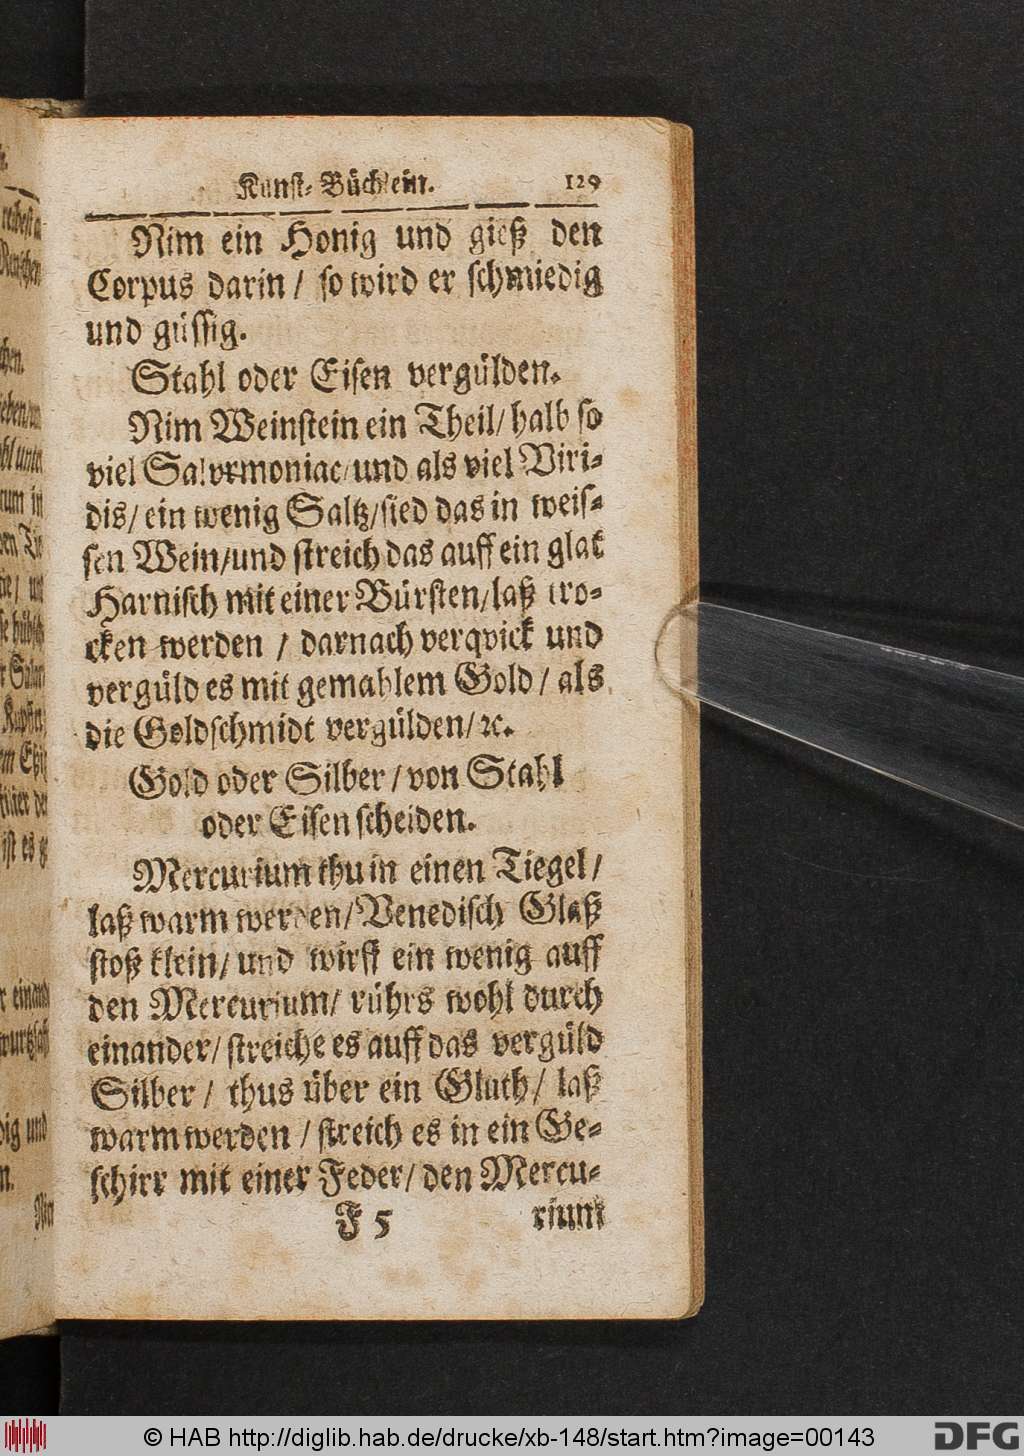 Kunst-Büchlein. 129
Nim ein Honig und gieß den
Corpus darin / so wird er schmiedig
und güssig.
Stahl oder Eisen vergülden.
Nim Weinstein ein Theil / halb so
viel Salormoniac / und als viel Viri-
dis / ein wenig Saltz / sied das in weis-
sen Wein / und streich das auff ein glat
Harnisch mit einer Bürsten / laß tro-
cken werden / darnach verqvick und
vergüld es mit gemahlem Gold / als
die Goldschmidt vergülden / ꝛc.
Gold oder Silber / von Stahl
oder Eisen scheiden.
Mercurium thu in einen Tiegel /
laß warm werden / Venedisch Glaß
stoß klein / und wirff ein wenig auff
den Mercurium / rührs wohl durch
einander / streiche es auff das vergüld
Silber / thus über ein Gluth / laß
warm werden / streich es in ein Ge-
schirr mit einer Feder / den Mercu-
F 5 rium
© HAB http://diglib.hab.de/drucke/xb-148/start.htm?image=00143
DFG